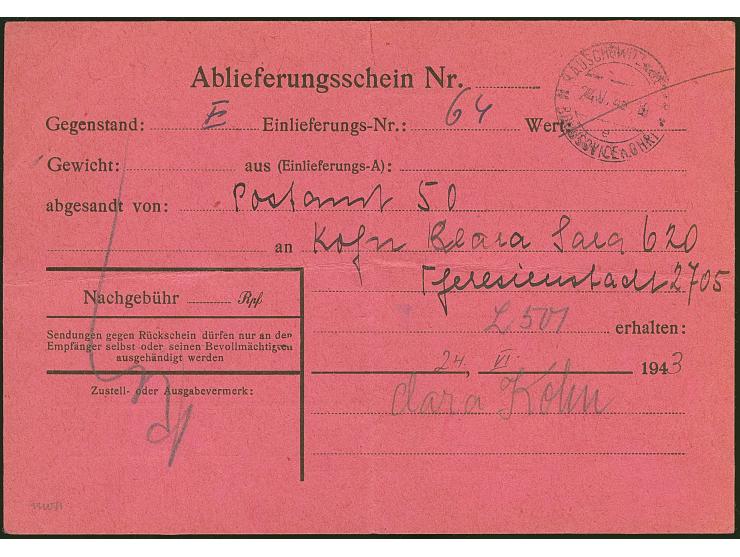 Ablieferungsschein Nr.
Gegenstand: E Einlieferungs-Nr.: 64 Wert
Gewicht: aus (Einlieferungs-A):
abgesandt von: Postamt 50
an Kohn Klara Sara 620
Theresienstadt 2705
Nachgebühr Rpf
L 501 erhalten:
Sendungen gegen Rückschein dürfen nur an den
Empfänger selbst oder seinen Bevollmächtigten
ausgehändigt werden
24. VI. 1943
Zustell- oder Ausgabevermerk:
Clara Kohn